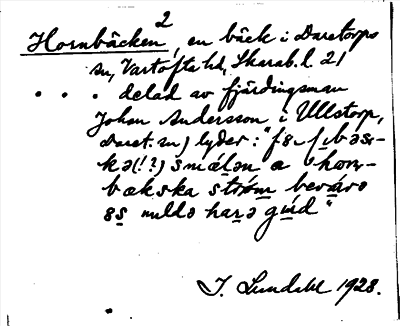 2
Hornbäcken, en bäck i Daretorps
sn, Vartofta hd, Skarab. l. 21
. . . delad av fjärdingsman
Johan Andersson i Ullstorp,
Daret. sn) lyder: "
(!?) smälən a horn-
bækska strøm bevara
nullə harə gud"
I. Lundahl 1928.